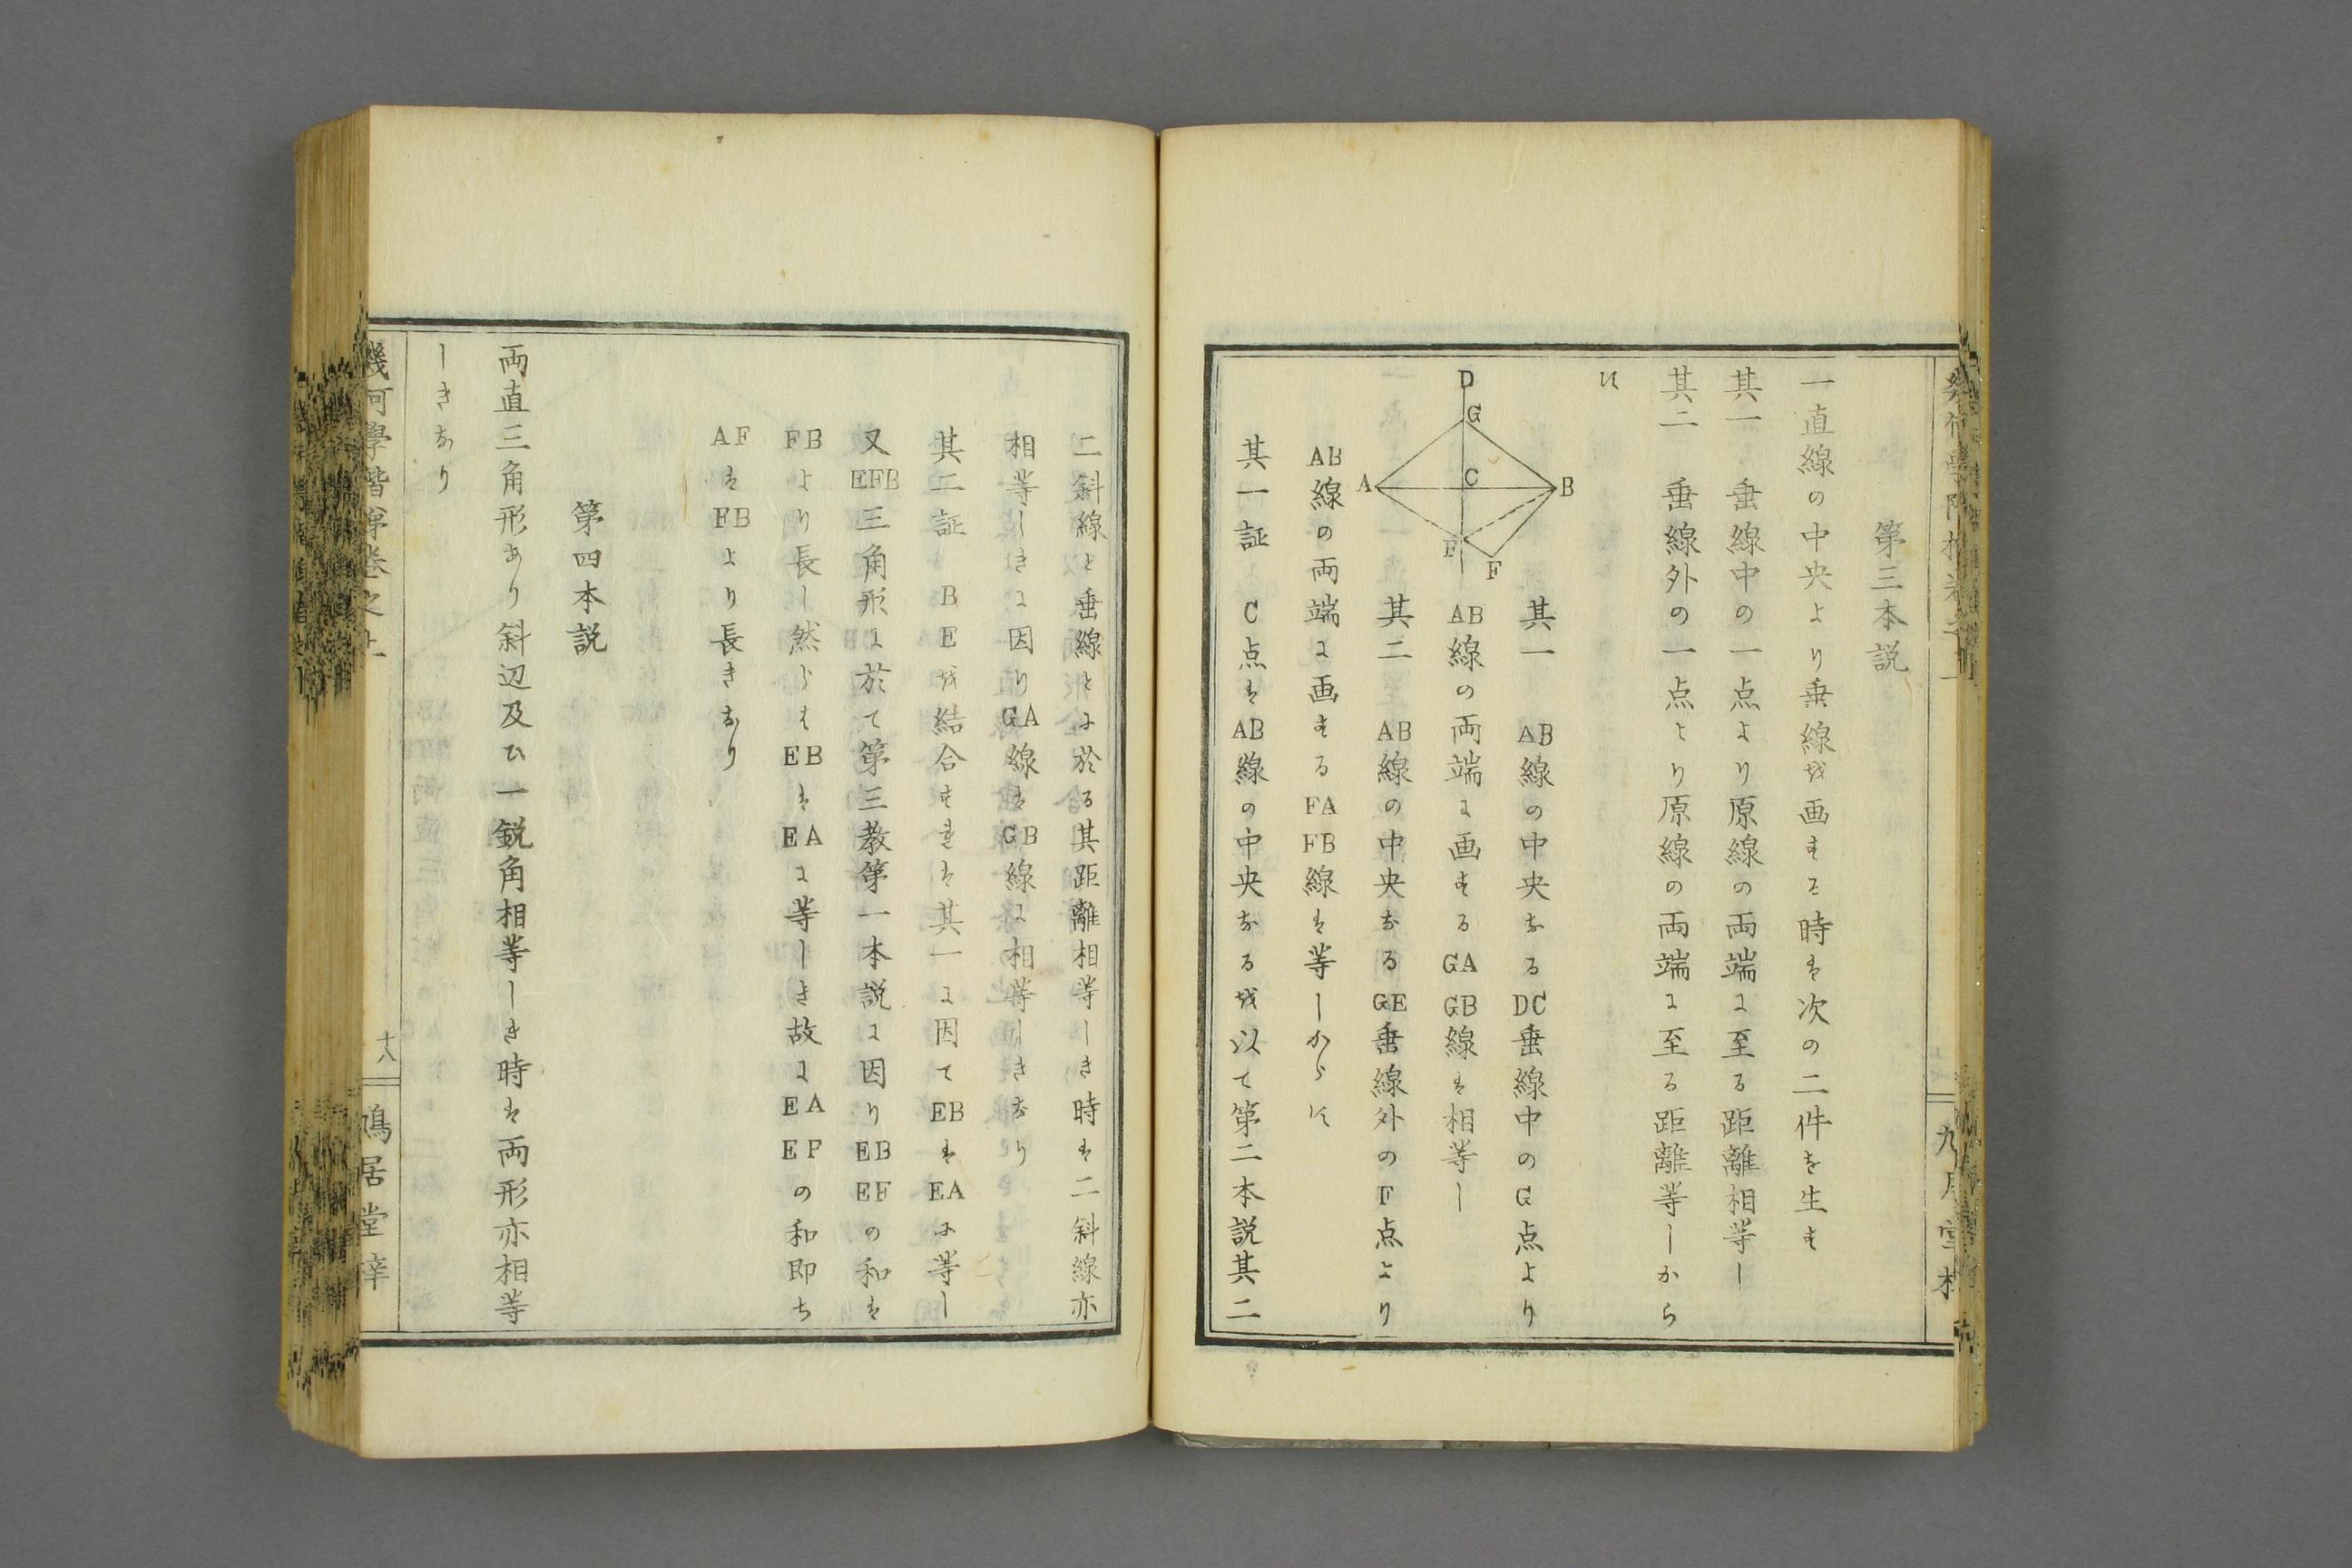 第三本説
一直線の中央より垂線を画する時は次の二件を生す
其一 垂線中の一点より原線の両端に至る距離相等し
其二 垂線外の一点より原線の両端に至る距離等しから
す
D
G
C
A
B
E
F
其一 AB線の中央なるDC垂線中のG点より
AB線の両端に画するGA GB線は相等し
其二 AB線の中央なるGE垂線外のF点より
AB線の両端に画するFA FB線は等しからす
其一証 C点はAB線の中央なるを以て第二本説其二
二斜線と垂線とに於る其距離相等しき時は二斜線亦
相等しきに因りGA線はGB線に相等しきなり
其二証 BEを結合すれは其一に因てEBはEAに等し
又EFB三角形に於て第三教第一本説に因りEB EFの和は
FBより長し然らはEBはEAに等しき故にEA EFの和即ち
AFはFBより長きなり
第四本説
両直三角形あり斜辺及ひ一鋭角相等しき時は両形亦相等
しきなり
幾何學階梯卷之上
十八
鳴居堂梓